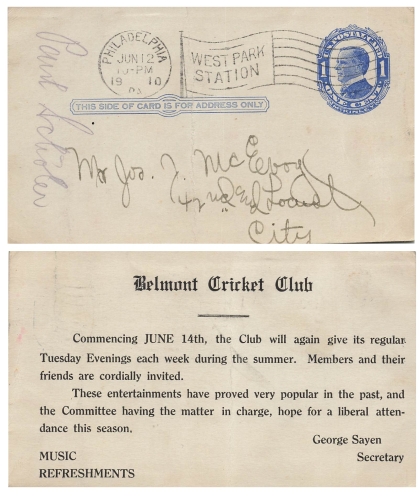 Paul Scholer
PHILADELPHIA
JUN 12
10-PM
1910
PA
WEST PARK
STATION
U.S. POSTAL CARD
1 1
ONE CENT
THIS SIDE OF CARD IS FOR ADDRESS ONLY
Mr Jos. J. McEvoy
42nd and Locust
City
Belmont Cricket Club
Commencing JUNE 14th, the Club will again give its regular
Tuesday Evenings each week during the summer. Members and their
friends are cordially invited.
These entertainments have proved very popular in the past, and
the Committee having the matter in charge, hope for a liberal atten-
dance this season.
George Sayen
MUSIC Secretary
REFRESHMENTS